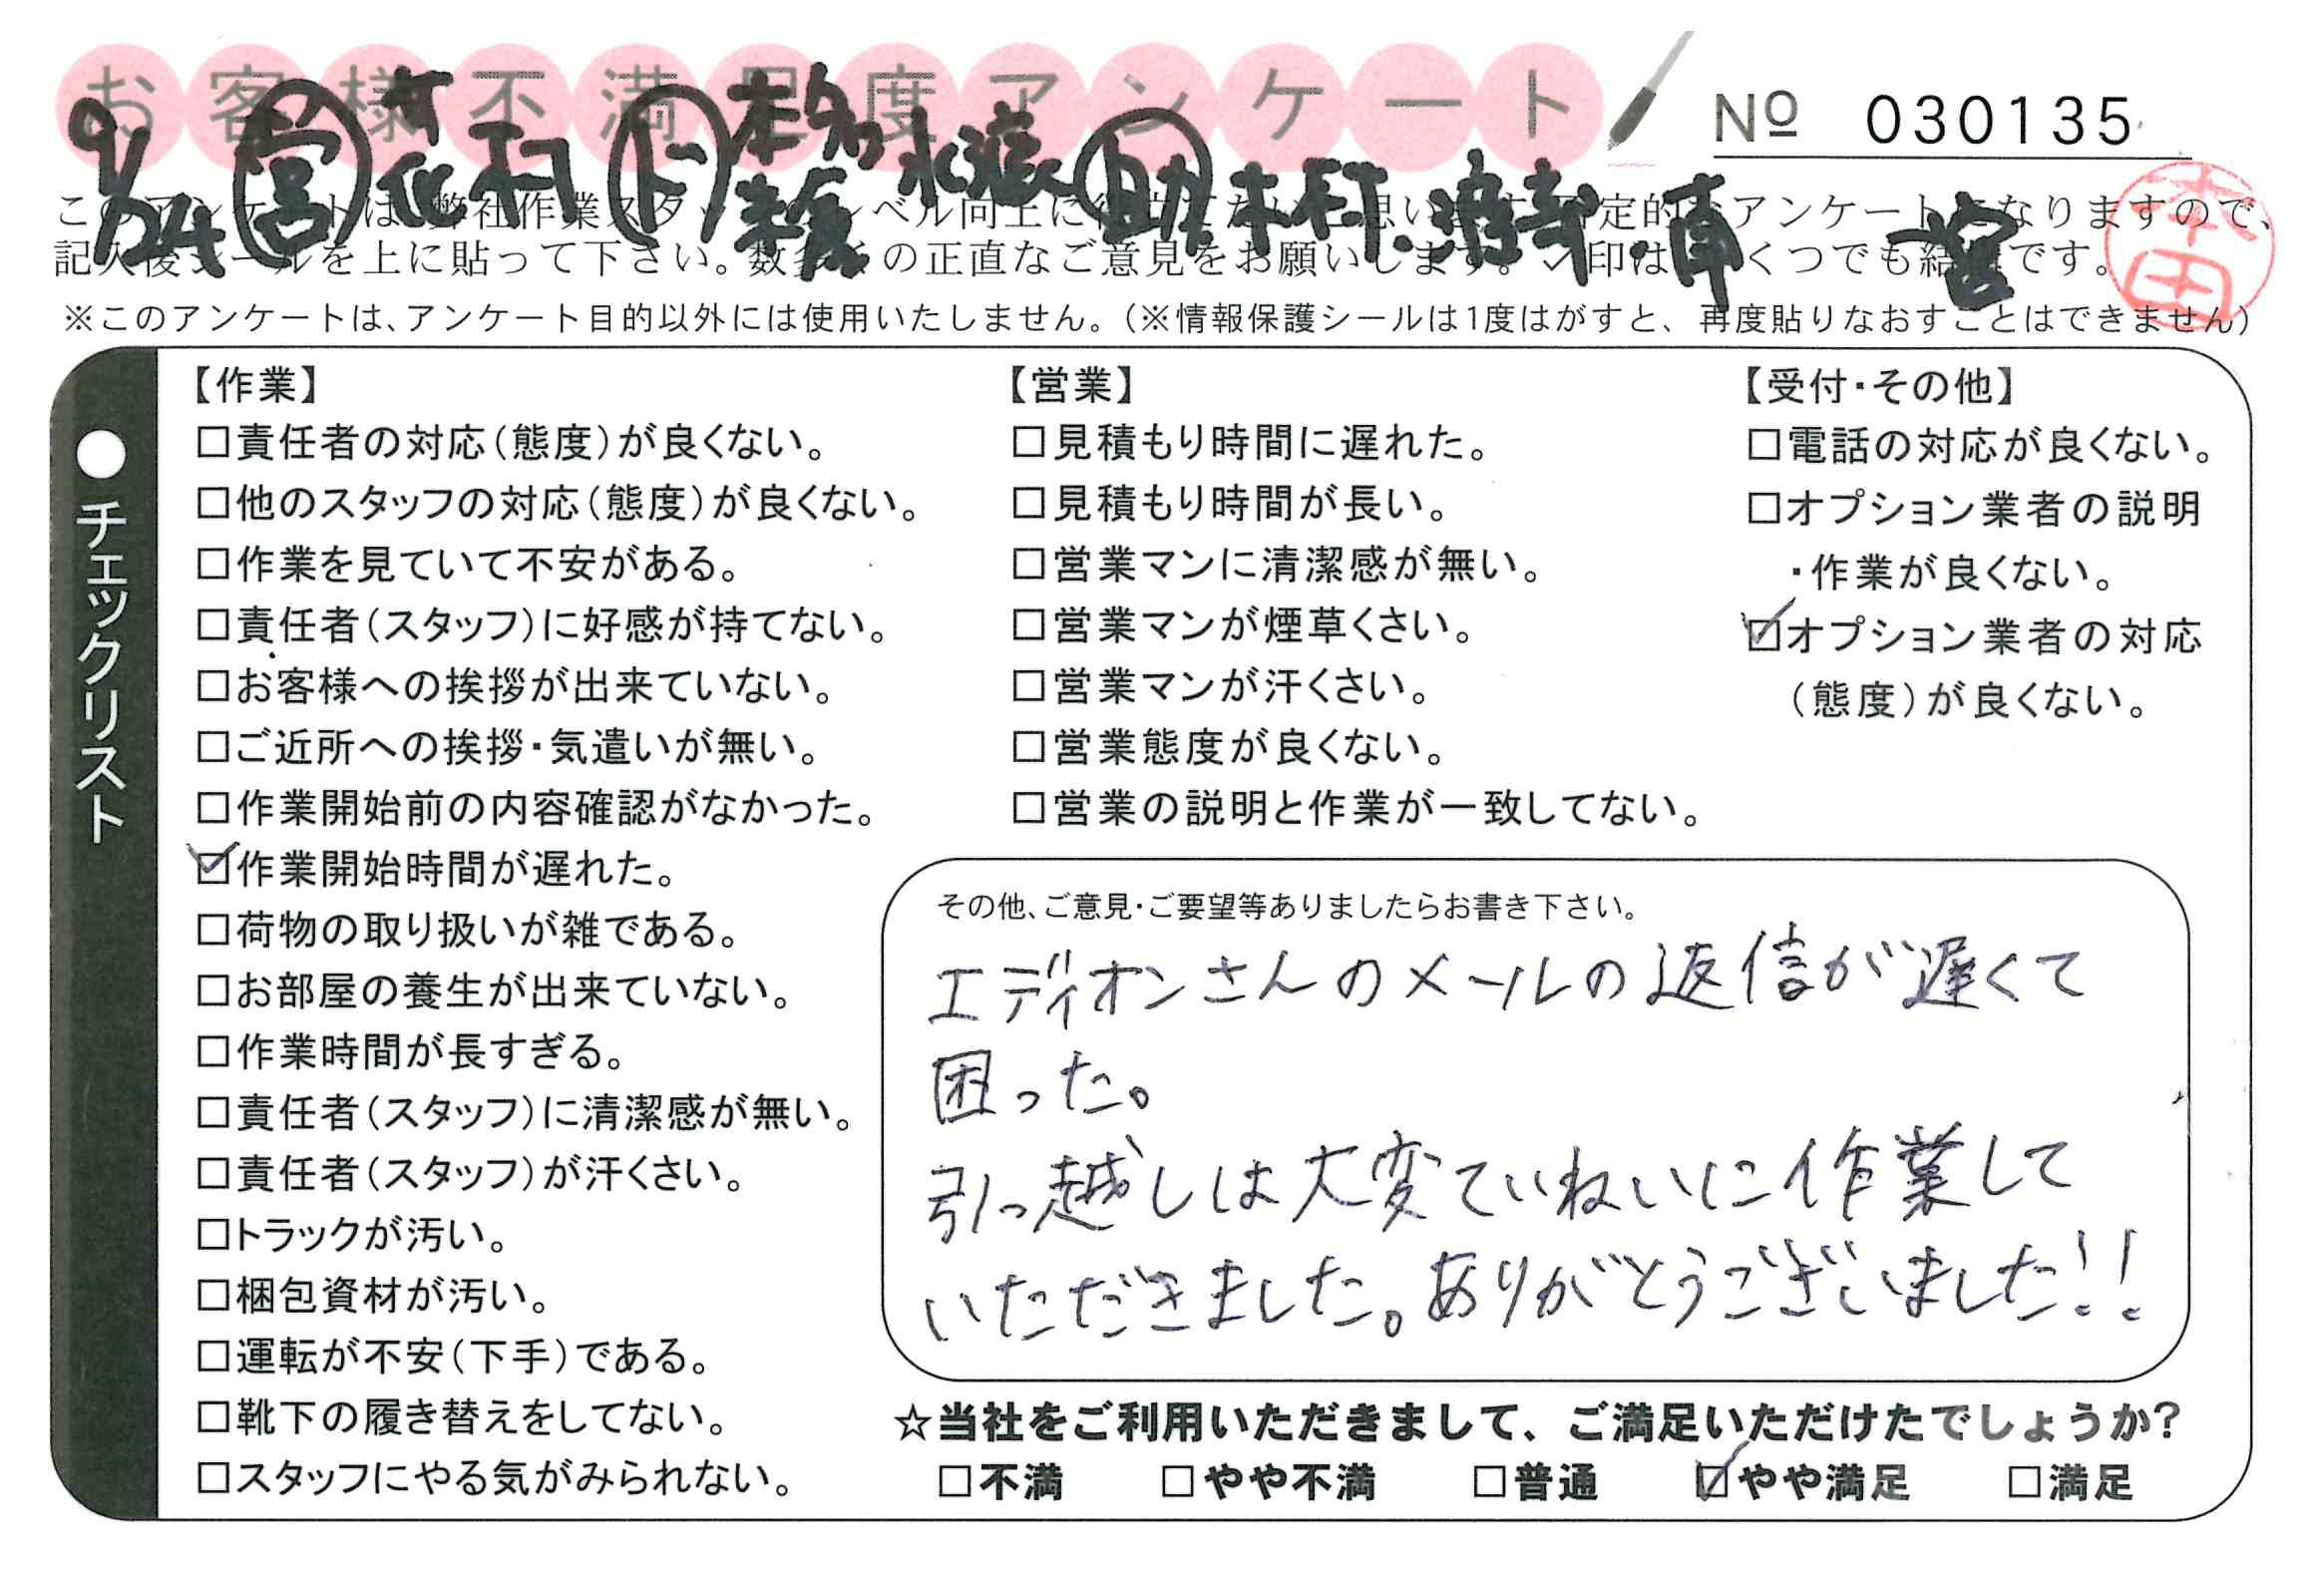 お客様不満足度アンケート
№ 030135
9/24 営 ト 助
本田
※このアンケートは、アンケート目的以外には使用いたしません。（※情報保護シールは1度はがすと、再度貼りなおすことはできません）
●チェックリスト
【作業】
□責任者の対応（態度）が良くない。
□他のスタッフの対応（態度）が良くない。
□作業を見ていて不安がある。
□責任者（スタッフ）に好感が持てない。
□お客様への挨拶が出来ていない。
□ご近所への挨拶・気遣いが無い。
□作業開始前の内容確認がなかった。
☑作業開始時間が遅れた。
□荷物の取り扱いが雑である。
□お部屋の養生が出来ていない。
□作業時間が長すぎる。
□責任者（スタッフ）に清潔感が無い。
□責任者（スタッフ）が汗くさい。
□トラックが汚い。
□梱包資材が汚い。
□運転が不安（下手）である。
□靴下の履き替えをしてない。
□スタッフにやる気がみられない。
【営業】
□見積もり時間に遅れた。
□見積もり時間が長い。
□営業マンに清潔感が無い。
□営業マンが煙草くさい。
□営業マンが汗くさい。
□営業態度が良くない。
□営業の説明と作業が一致してない。
【受付・その他】
□電話の対応が良くない。
□オプション業者の説明
・作業が良くない。
☑オプション業者の対応
（態度）が良くない。
その他、ご意見・ご要望等ありましたらお書き下さい。
エディオンさんのメールの返信が遅くて
困った。
引っ越しは大変ていねいに作業して
いただきました。ありがとうございました!!
☆当社をご利用いただきまして、ご満足いただけたでしょうか？
□不満 □やや不満 □普通 ☑やや満足 □満足